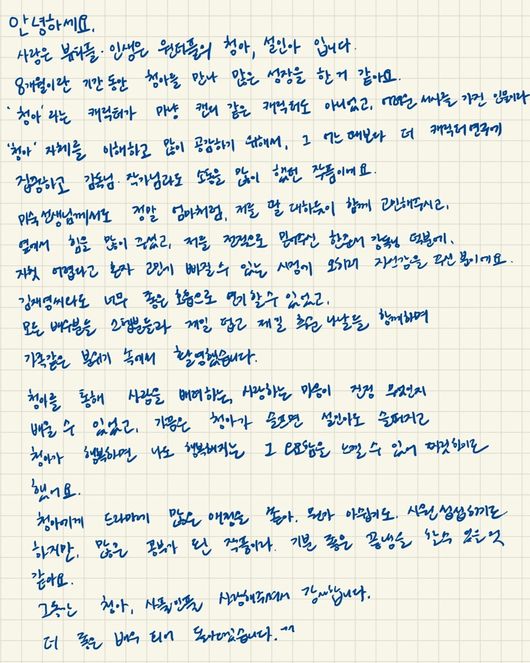 안녕하세요.
사랑은 뷰티풀. 인생은 원더풀의 청아, 설인아 입니다.
8개월이란 기간동안 청아를 만나 많은 성장을 한거 같아요.
'청아' 라는 캐릭터가 마냥 캔디 같은 캐릭터도 아니었고, 어려운 서사를 가진 인물이라
'청아' 자체를 이해하고 많이 공감하기 위해서, 그 어느때보다 더 캐릭터연구에
집중하고 감독님. 작가님과도 소통을 많이 했던 작품이에요.
미숙선생님께서도 정말 엄마처럼, 저를 딸 대하듯이 함께 고민해주시고,
옆에서 힘을 많이 주셨고, 저를 전적으로 믿어주신 한준서 감독님 덕분에,
자칫 어렵다고 혼자 고민에 빠질수 있는 시점에 오히려 자신감을 주신 분이에요.
김재영씨와도 너무 좋은 호흡으로 연기할 수 있었고,
모든 배우분들 스탭분들과 제일 덥고 제일 추운 나날들 함께하며
가족같은 분위기 속에서 촬영했습니다.
청아를 통해 사람을 배려하는, 사랑하는 마음이 진정 무엇인지
배울 수 있었고, 가끔은 청아가 슬프면 설인아도 슬퍼지고
청아가 행복하면 나도 행복해지는 그 오묘함을 느낄 수 있어 짜릿하기도
했어요.
청아에게 드라마에 많은 애정을 쏟아. 뭔가 아쉽기도. 시원섭섭하기도
하지만, 많은 공부가 된 작품이라 기분 좋은 끝냄을 할수 있을 것
같아요.
그동안 청아, 사풀인풀 사랑해주셔서 감사합니다.
더 좋은 배우 되어 돌아오겠습니다. ^^